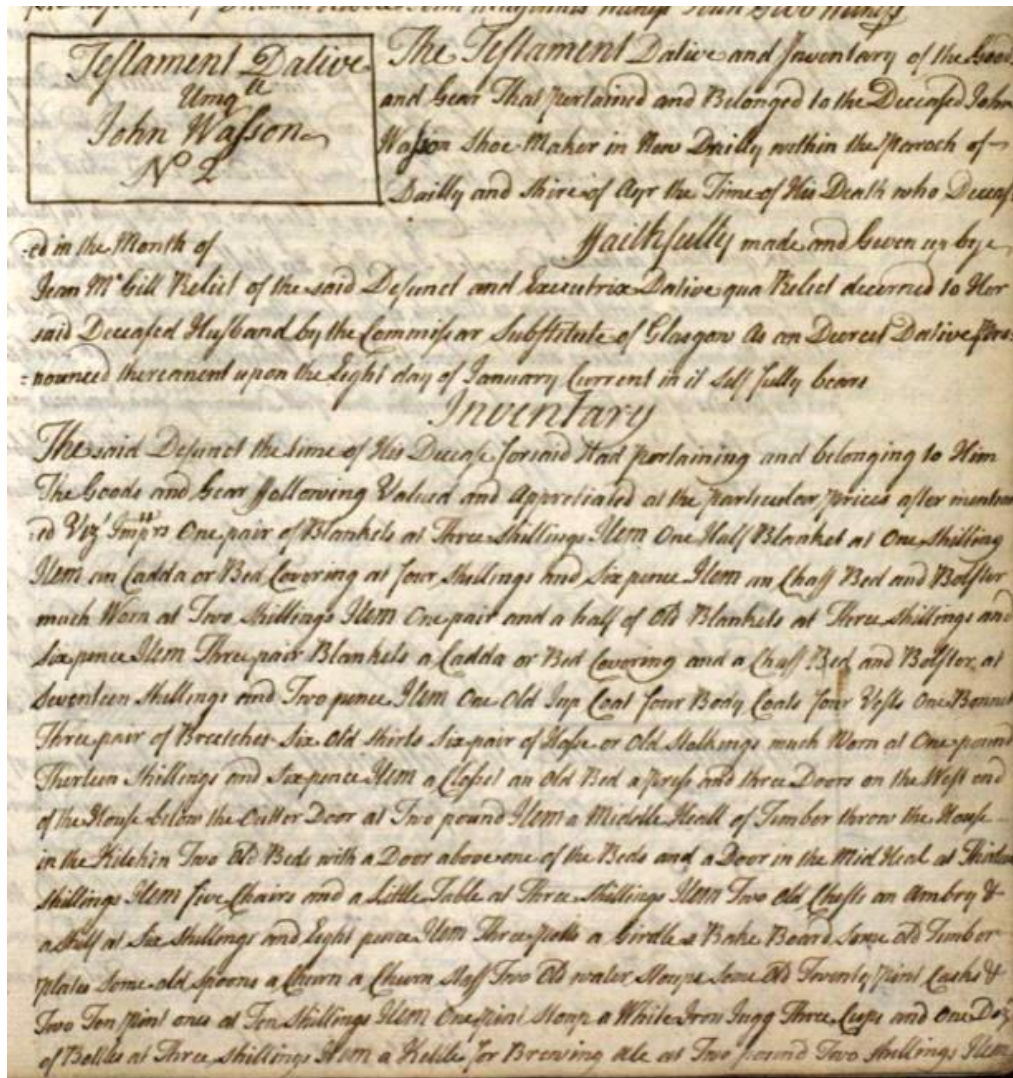 Testament Dative
Umq.ll
John Wasson
No 2
The Testament Dative and Inventary of the Goods
and Gear That pertained and Belonged to the Deceased John
Wasson Shoe Maker in New Dailly within the Paroch of
Dailly and Shire of Ayr the Time of His Death who Deceas
=ed in the Month of Faithfully made and Given up by
Jean McGill Relict of the said Defunct and Executrix Dative qua Relict decerned to Her
said Deceased Husband by the Commissar Substitute of Glasgow As an Decreet Dative Pro=
=nounced thereanent upon the Eight day of January Current in it self fully bears
Inventary
The said Defunct the time of His Decease forsaid Had pertaining and belonging to Him
The Goods and Gear following Valued and Appretiated at the particular prices after mention
=ed Vizt Imprs One pair of Blankets at Three Shillings Item One Half Blanket at One Shilling
Item an Cadda or Bed Covering at four Shillings and Six pence Item an Chaff Bed and Bolster
much Worn at Two Shillings Item One pair and a half of Old Blankets at Three Shillings and
Six pence Item Three pair Blankets a Cadda or Bed Covering and a Chaff Bed and Bolster at
Seventeen Shillings and Two pence Item One Old Jup Coat four Body Coats four Vests One Bonnet
Three pair of Breetches Six Old Shirts Six pair of Hose or Old Stockings much Worn at One pound
Therteen Shillings and Six pence Item a Closet an old Bed a press and three Doors on the West end
of the House below the Outter Door at Two pound Item a Middle Heall of Timber throw the House
in the Kitchin Two Old Beds with a Door above one of the Beds and a Door in the Mid Heal at
Shillings Item five Chairs and a Little Table at Three Shillings Item Two Old Chests an Ambry &
a Shelf at Six Shillings and Eight pence Item Three potts a Girdle a Bake Board Some old Timber
plates Some old spoons a Churn a Churn Staff Two Old water Stoups Some Old Twenty pint Casks &
Two Ten pint ones at Ten Shillings Item One pint Stoup a White Iron Jugg Three Cups and one Doz
of Bottles at Three Shillings Item a Kettle for Brewing Ale at Two pound Two Shillings Item